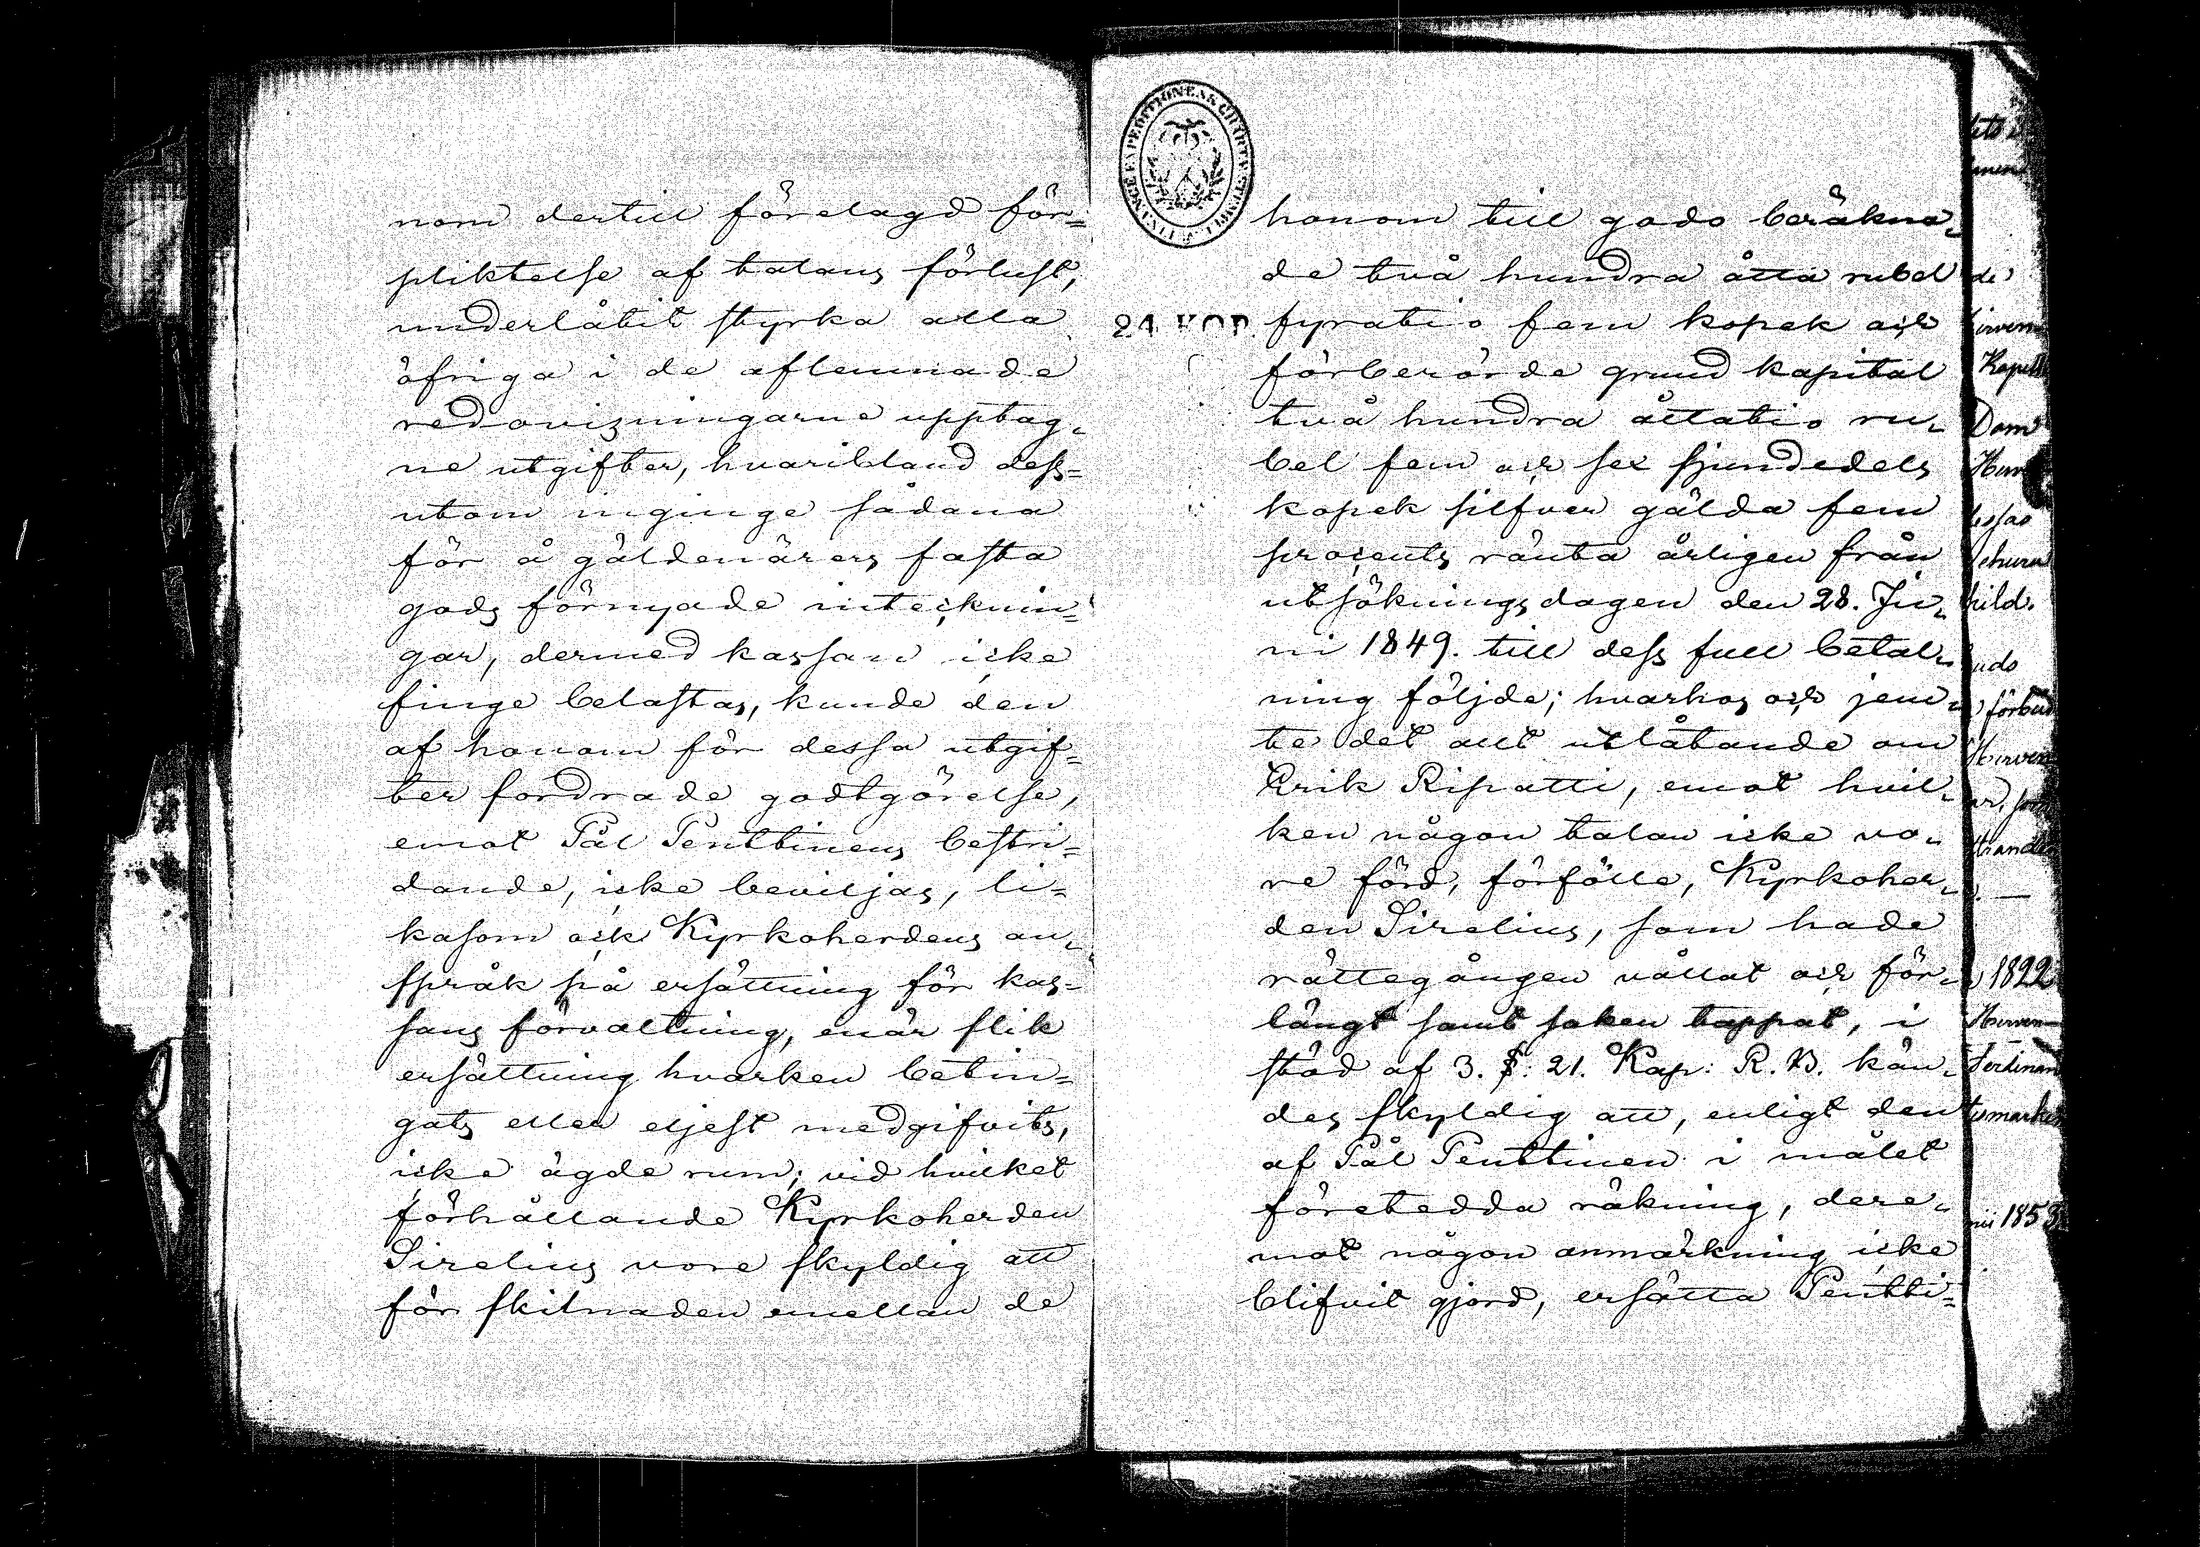 nom dertill förelagd för=
pliktelse af talans förlust,
underlåtit styrka alla
öfriga i de aflemnade
redovisningarne upptag-
ne utgifter, hvaribland dess=
utom inginge sådana
för å gäldenärers fasta
gods förnyade intecknin=
gar, dermed kassan icke
finge belastas, kunde den
af honom för dessa utgif=
ter fordrade godtgörelse,
emot Pål Penttinens bestri=
dande, icke beviljas, li=
kasom ock Kyrkoherdens an-
språk på ersättning för kas=
sans förvaltning, enär slik
ersättning hvarken betin=
gats eller eljest medgifvits,
icke ägde rum; vid hvilket
förhållande Kyrkoherden
Sirelius vore skyldig att
för skilnaden emellan de
24 KOP.
honom till godo beräkna-
de två hundra åtta rubel
fyratio fem kopek och
förberörde grund kapital
två hundra åttatio ru-
bel fem och sex sjundedels
kopek silfver gälda fem
procents ränta årligen från
utsökningsdagen den 28. Ju-
ni 1849. till dess full betal-
ning följde; hvarhos och jem-
te det allt utlåtande om
Erik Ripatti, emot hvil-
ken någon talan icke vo-
re förd, förfölle, Kyrkoher-
den Sirelius, som hade
rättegången vållat och för-
längt samt saken tappat, i
stöd af 3. §. 21. Kap: R. B. kän-
des skyldig att, enligt den
af Pål Penttinen i målet
företedda räkning, dere-
mot någon anmärkning icke
blifvit gjord, ersätta Pentti=
de
Kapell
Dom
förbud
1822
Ferdinan
1853